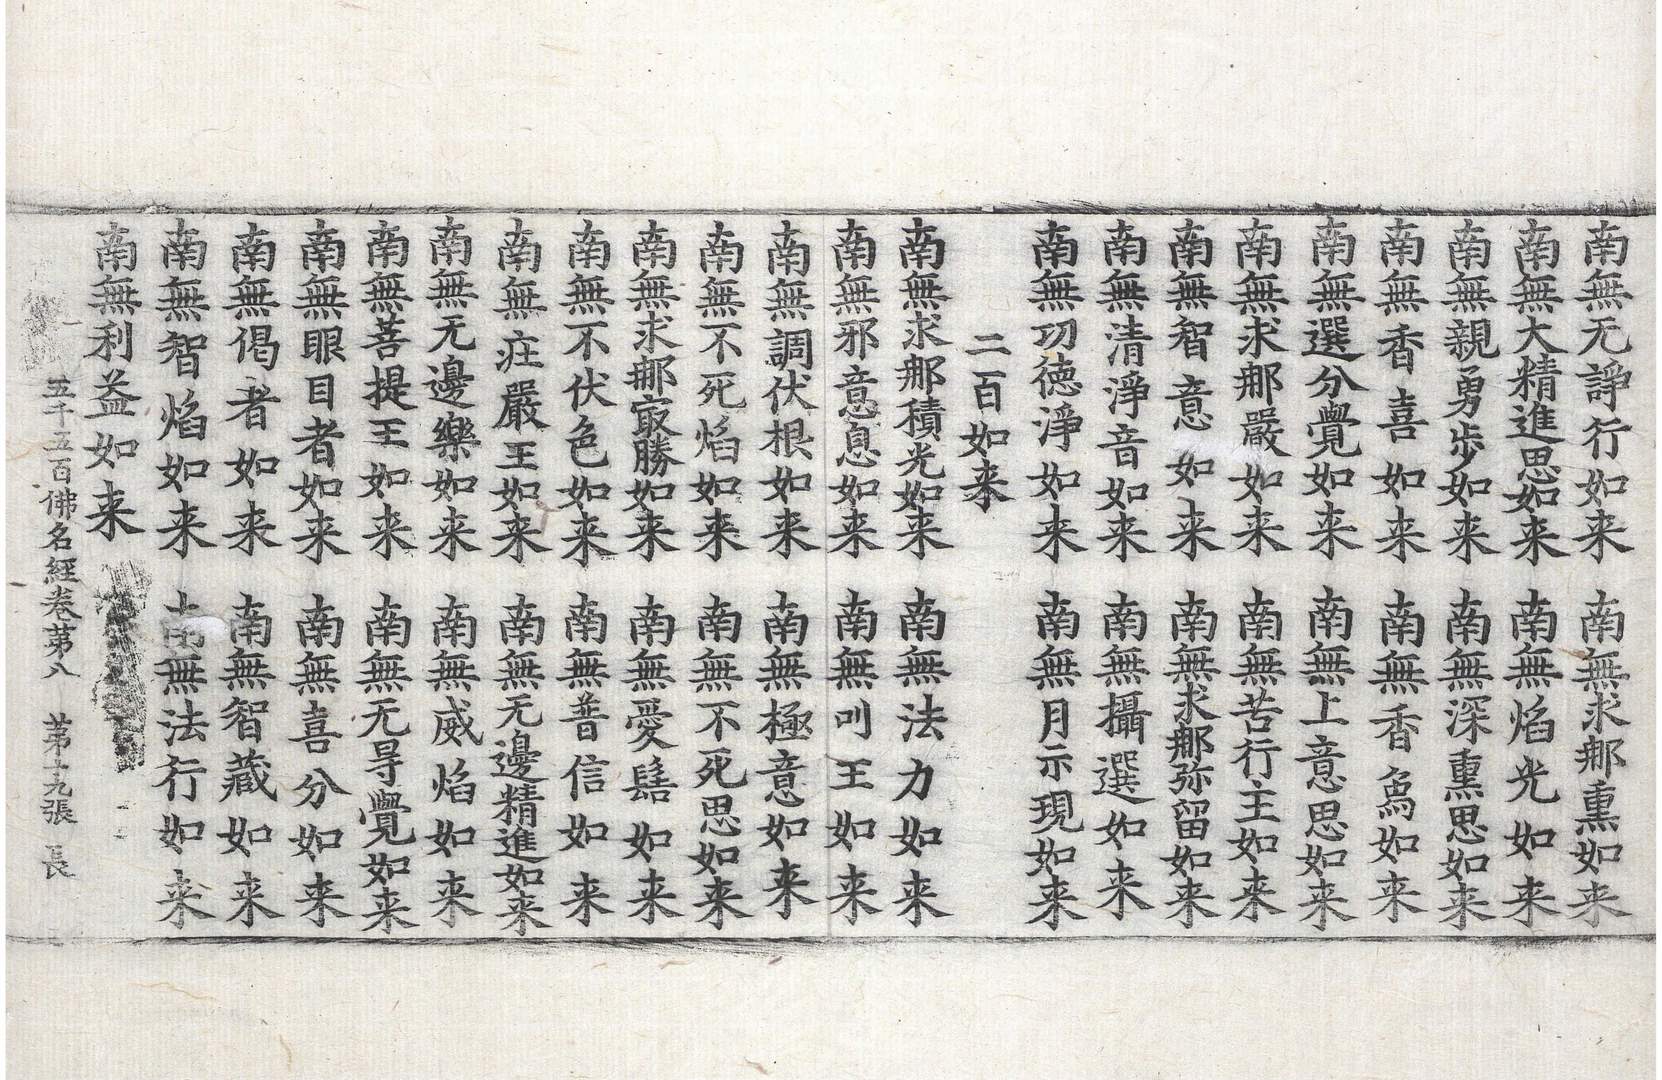 南無无諍行如来 南無求那熏如来
南無大精進思如来 南無焰光如来
南無親勇步如来 南無深熏思如来
南無香喜如来 南無香烏如来
南無選分覺如来 南無上意思如来
南無求那嚴如来 南無苦行主如来
南無智意如来 南無求那弥留如来
南無清淨音如来 南無攝選如来
南無功德淨如来 南無月示現如来
二百如来
南無求那積光如来 南無法力如来
南無邪意息如来 南無叫王如来
南無調伏根如来 南無極意如来
南無不死焰如来 南無不死思如来
南無求那㝡勝如来 南無愛髻如来
南無不伏色如来 南無普信如来
南無庄嚴王如来 南無无邊精進如来
南無无邊樂如来 南無威焰如来
南無菩提王如来 南無无㝵覺如来
南無眼目者如来 南無喜分如来
南無偈者如来 南無智藏如来
南無智焰如来 南無法行如来
南無利益如来
五千五百佛名經卷第八 第十九張 長